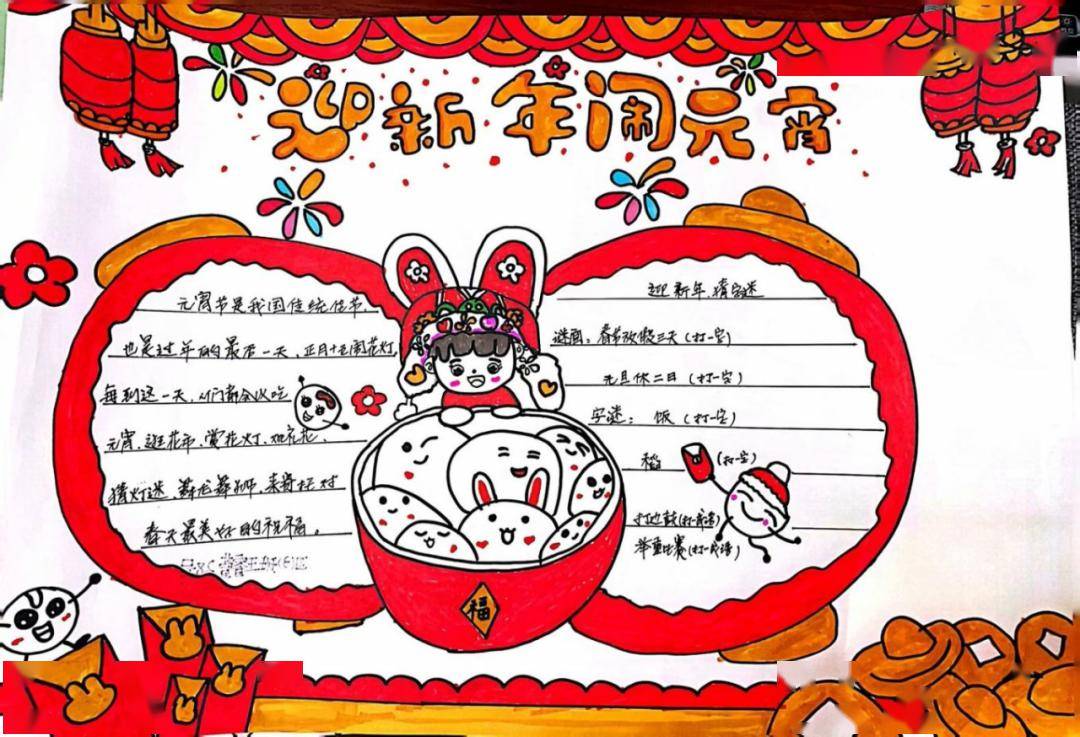 迎新年闹元宵
元宵节是我国传统佳节,
也是过年的最后一天,正月十五闹花灯,
每到这一天,人们都会以吃
元宵、逛花市、赏花灯、烟花、
猜灯迷 舞龙舞狮,来寄托对
春天最美好的祝福。
迎新年、猜字迷
谜面:春节放假三天(打一字)
元旦休二日(打一字)
字迷: 饭(打一字)
稻 (打一字)
打边鼓(打一成语)
举重比赛(打一成语)
福